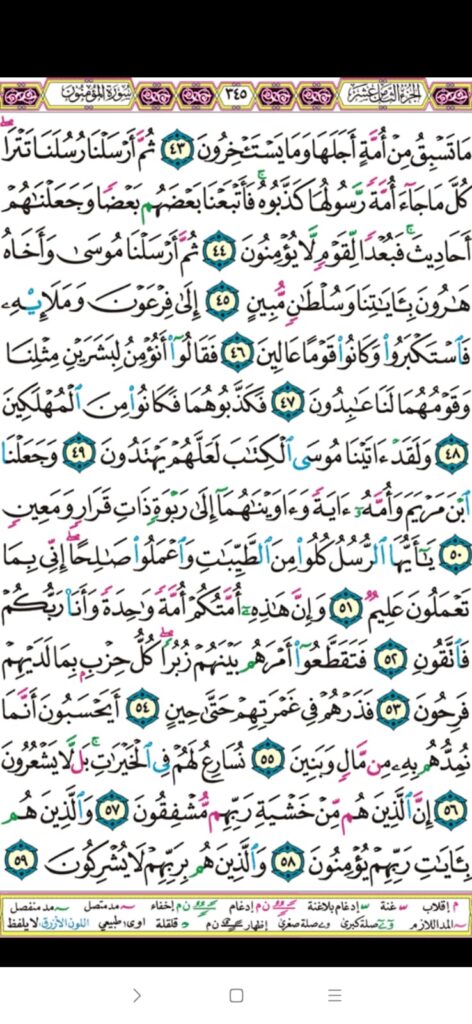 الجزء الثامن عشر ٣٤٥ سورة المؤمنون
مَا تَسْبِقُ مِنْ أُمَّةٍ أَجَلَهَا وَمَا يَسْتَـْٔخِرُونَ ٤٣ ثُمَّ أَرْسَلْنَا رُسُلَنَا تَتْرَا ۖ
كُلَّ مَا جَآءَ أُمَّةً رَّسُولُهَا كَذَّبُوهُ ۚ فَأَتْبَعْنَا بَعْضَهُم بَعْضًا وَجَعَلْنَـٰهُمْ
أَحَادِيثَ ۚ فَبُعْدًا لِّقَوْمٍ لَّا يُؤْمِنُونَ ٤٤ ثُمَّ أَرْسَلْنَا مُوسَىٰ وَأَخَاهُ
هَـٰرُونَ بِـَٔايَـٰتِنَا وَسُلْطَـٰنٍ مُّبِينٍ ٤٥ إِلَىٰ فِرْعَوْنَ وَمَلَإِي۟هِۦ
فَٱسْتَكْبَرُوا۟ وَكَانُوا۟ قَوْمًا عَالِينَ ٤٦ فَقَالُوٓا۟ أَنُؤْمِنُ لِبَشَرَيْنِ مِثْلِنَا
وَقَوْمُهُمَا لَنَا عَـٰبِدُونَ ٤٧ فَكَذَّبُوهُمَا فَكَانُوا۟ مِنَ ٱلْمُهْلَكِينَ
٤٨ وَلَقَدْ ءَاتَيْنَا مُوسَى ٱلْكِتَـٰبَ لَعَلَّهُمْ يَهْتَدُونَ ٤٩ وَجَعَلْنَا
ٱبْنَ مَرْيَمَ وَأُمَّهُۥٓ ءَايَةً وَءَاوَيْنَـٰهُمَآ إِلَىٰ رَبْوَةٍ ذَاتِ قَرَارٍ وَمَعِينٍ
٥٠ يَـٰٓأَيُّهَا ٱلرُّسُلُ كُلُوا۟ مِنَ ٱلطَّيِّبَـٰتِ وَٱعْمَلُوا۟ صَـٰلِحًا ۖ إِنِّى بِمَا
تَعْمَلُونَ عَلِيمٌ ٥١ وَإِنَّ هَـٰذِهِۦٓ أُمَّتُكُمْ أُمَّةً وَٰحِدَةً وَأَنَا۠ رَبُّكُمْ
فَٱتَّقُونِ ٥٢ فَتَقَطَّعُوٓا۟ أَمْرَهُم بَيْنَهُمْ زُبُرًا ۖ كُلُّ حِزْبٍۭ بِمَا لَدَيْهِمْ
فَرِحُونَ ٥٣ فَذَرْهُمْ فِى غَمْرَتِهِمْ حَتَّىٰ حِينٍ ٥٤ أَيَحْسَبُونَ أَنَّمَا
نُمِدُّهُم بِهِۦ مِن مَّالٍ وَبَنِينَ ٥٥ نُسَارِعُ لَهُمْ فِى ٱلْخَيْرَٰتِ ۚ بَل لَّا يَشْعُرُونَ
٥٦ إِنَّ ٱلَّذِينَ هُم مِّنْ خَشْيَةِ رَبِّهِم مُّشْفِقُونَ ٥٧ وَٱلَّذِينَ هُم
بِـَٔايَـٰتِ رَبِّهِمْ يُؤْمِنُونَ ٥٨ وَٱلَّذِينَ هُم بِرَبِّهِمْ لَا يُشْرِكُونَ ٥٩
م إقلاب غنة إدغام بلاغنة ن م إدغام ن م إخفاء مد متصل مد منفصل
المد اللازم صلة كبرى صلة صغرى إظهار ن م قلقلة اوى طبيعي اللون الأزرق لا يلفظ